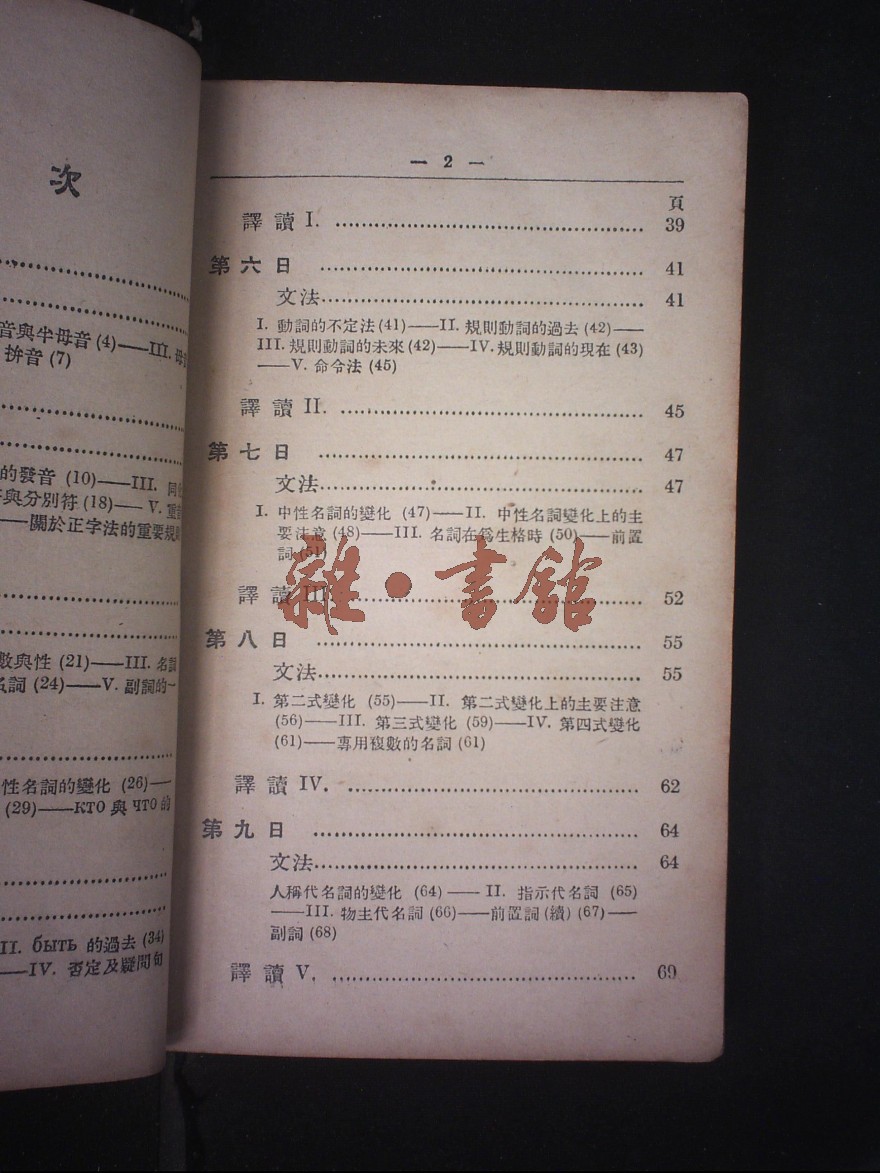 次
音與半母音 (4)——III. 母
拚音 (7)
的發音 (10)——III. 同
與分別符 (18)—— V. 重
——關於正字法的重要規則
數與性 (21)——III. 名詞
名詞 (24)——V. 副詞的一
性名詞的變化 (26)—
(29)——КТО 與 ЧТО 的
II. быть 的過去 (34)
——IV. 否定及疑問句
— 2 —
頁
譯讀 I. .................................................. 39
第六日 .................................................. 41
文法.................................................. 41
I. 動詞的不定法 (41)——II. 規則動詞的過去 (42)——
III. 規則動詞的未來 (42)——IV. 規則動詞的現在 (43)
——V. 命令法 (45)
譯讀 II. .................................................. 45
第七日 .................................................. 47
文法.................................................. 47
I. 中性名詞的變化 (47)——II. 中性名詞變化上的主
要注意 (48)——III. 名詞在爲生格時 (50)——前置
詞 (51)
譯讀 III. .................................................. 52
雜·書館
第八日 .................................................. 55
文法.................................................. 55
I. 第二式變化 (55)——II. 第二式變化上的主要注意
(56)——III. 第三式變化 (59)——IV. 第四式變化
(61)——專用複數的名詞 (61)
譯讀 IV. .................................................. 62
第九日 .................................................. 64
文法.................................................. 64
人稱代名詞的變化 (64)——II. 指示代名詞 (65)
——III. 物主代名詞 (66)——前置詞(續) (67)——
副詞 (68)
譯讀 V. .................................................. 69